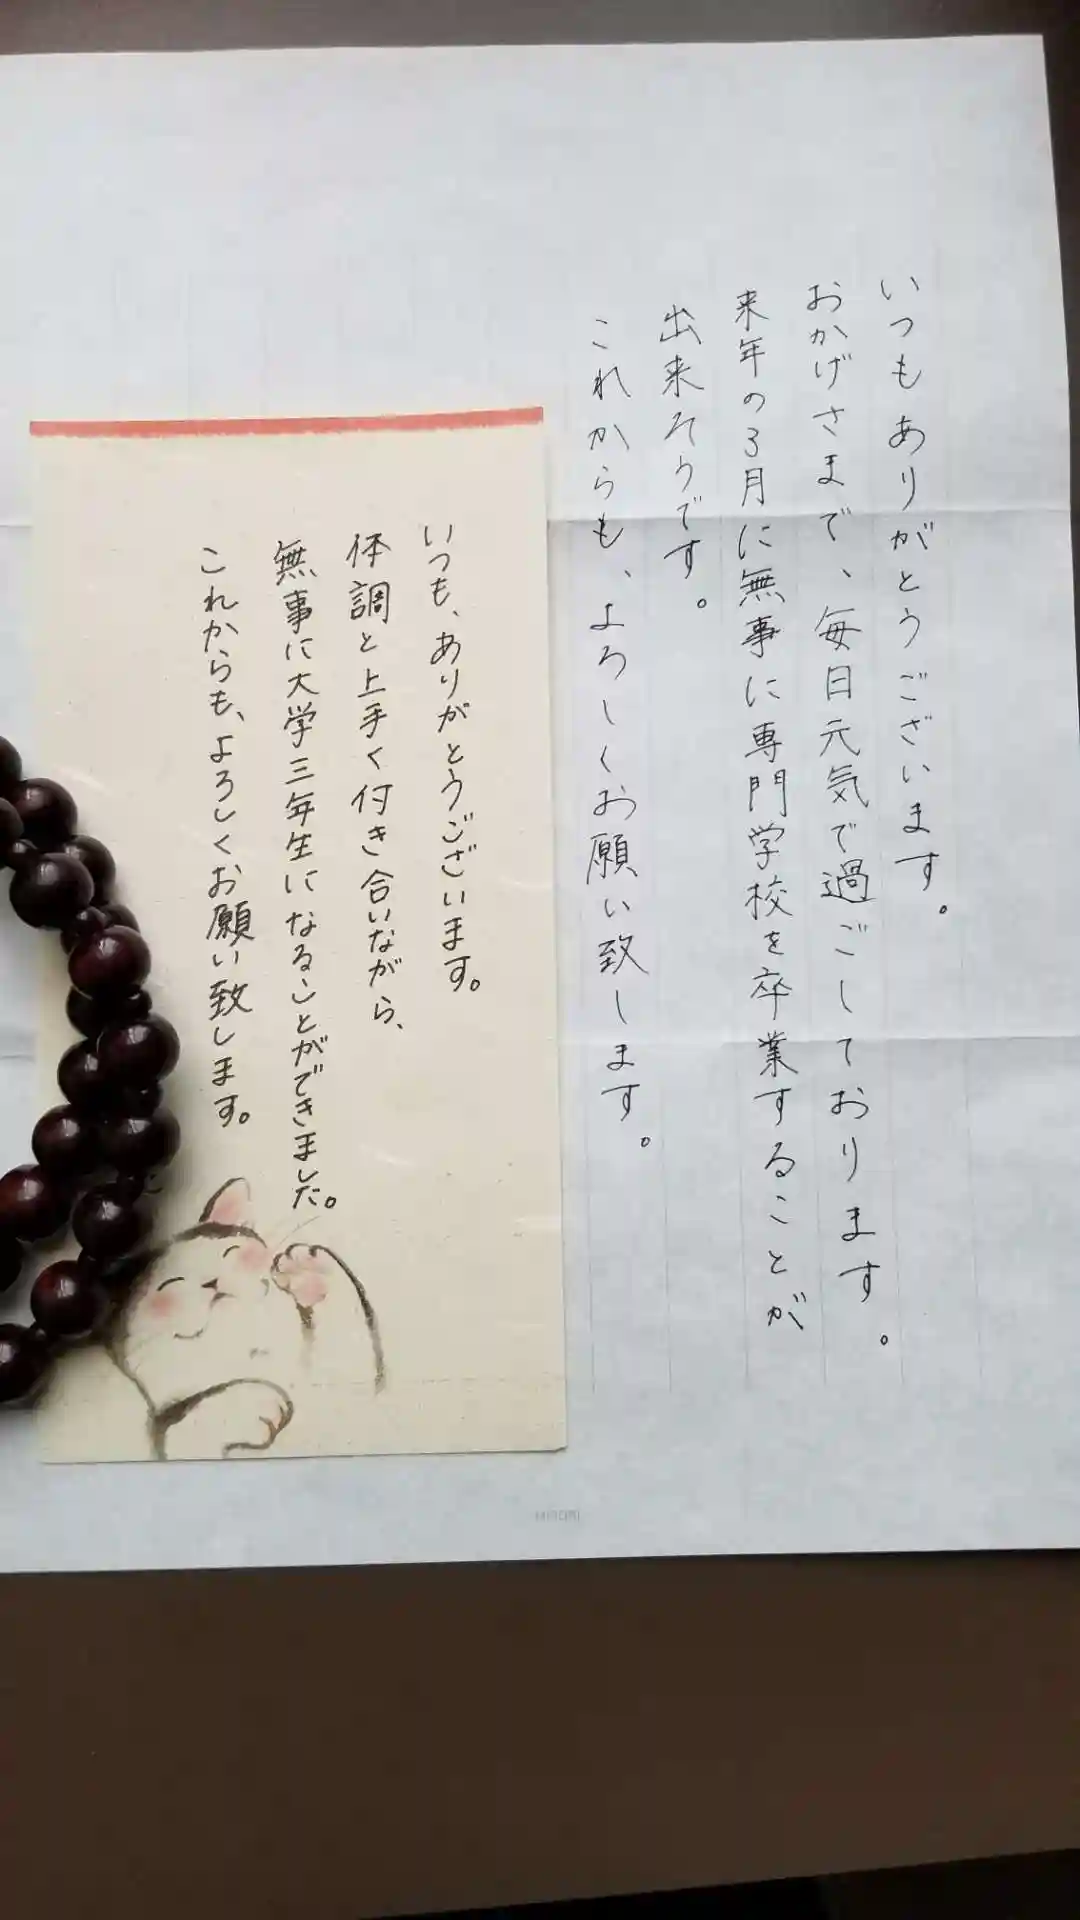 いつもありがとうございます。
おかげさまで、毎日元気で過ごしております。
来年の3月に無事に専門学校を卒業することが
出来そうです。
これからも、よろしくお願い致します。
いつも、ありがとうございます。
体調と上手く付き合いながら、
無事に大学三年生になることができました。
これからも、よろしくお願い致します。
MIDORI